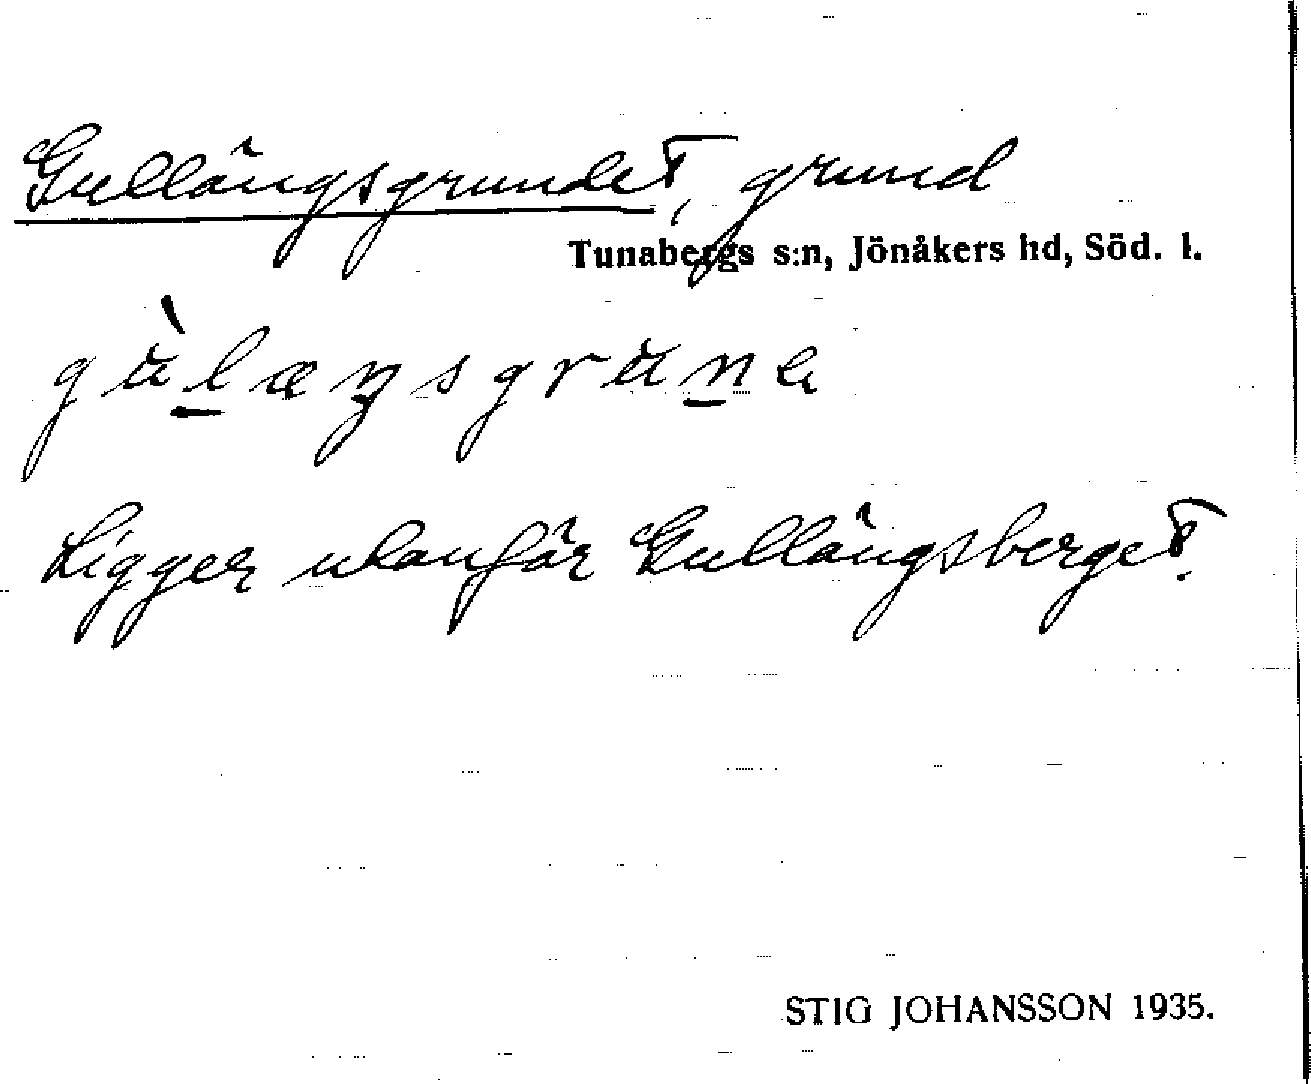 Gullängsgrundet, grund
Tunabergs s:n, Jönåkers hd, Söd. l.
gùl̲æŋsgrun̲e
Ligger utanför Gullängsberget.
STIG JOHANSSON 1935.